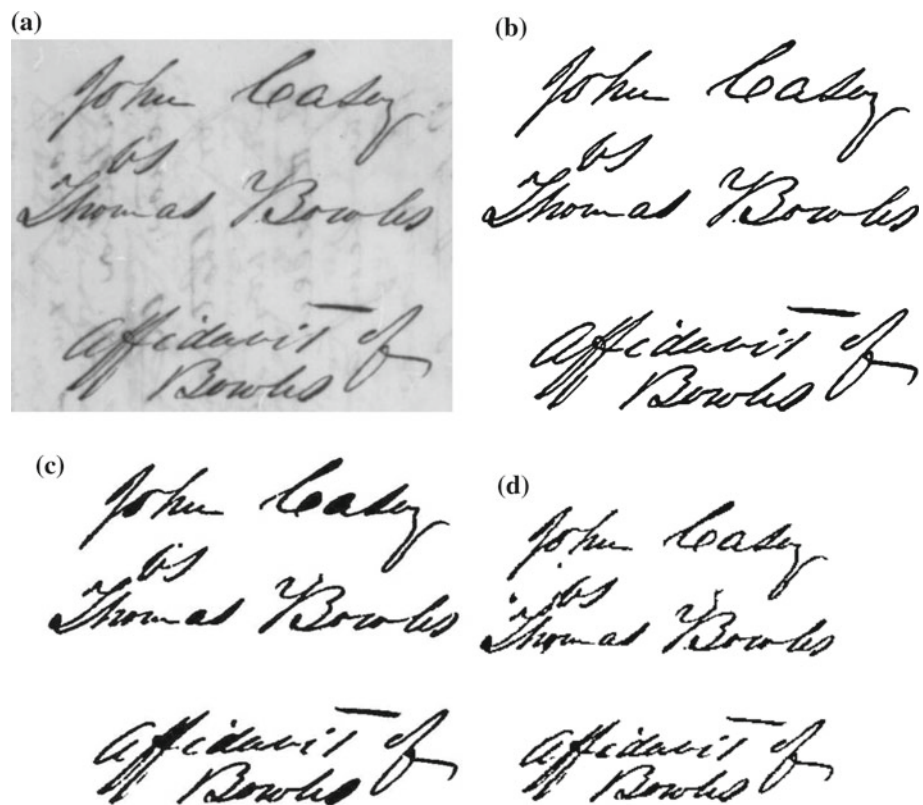 (a)
John Casey
vs
Thomas Bowles
Affidavit of
Bowles
(b)
John Casey
vs
Thomas Bowles
Affidavit of
Bowles
(c)
John Casey
vs
Thomas Bowles
Affidavit of
Bowles
(d)
John Casey
vs
Thomas Bowles
Affidavit of
Bowles